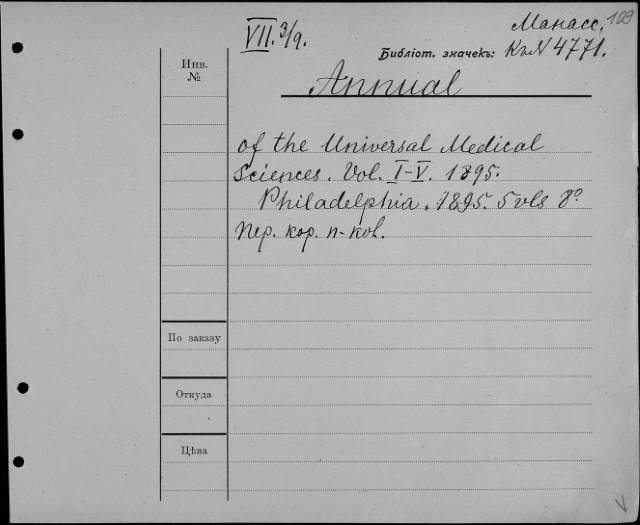 VII. 3/9.
Манасс. 109
Библіот. значекъ: К. N 4771.
Инв.
№
Annual
of the Universal Medical
Sciences. Vol. I-V. 1895.
Philadelphia. 1895. 5 vls 8°
Пер. кор. п-ков.
По заказу
Откуда
Цѣна
V